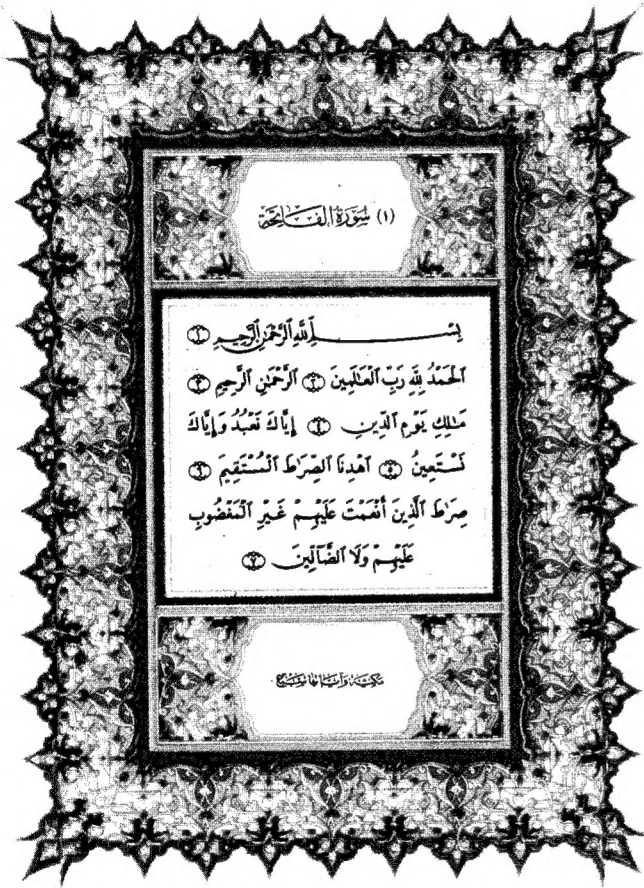 (١) سُورَةُ الفَاتِحَة
بِسْمِ اللَّهِ الرَّحْمَٰنِ الرَّحِيمِ ۝١
الْحَمْدُ لِلَّهِ رَبِّ الْعَالَمِينَ ۝٢ الرَّحْمَٰنِ الرَّحِيمِ ۝٣
مَالِكِ يَوْمِ الدِّينِ ۝٤ إِيَّاكَ نَعْبُدُ وَإِيَّاكَ
نَسْتَعِينُ ۝٥ اهْدِنَا الصِّرَاطَ الْمُسْتَقِيمَ ۝٦
صِرَاطَ الَّذِينَ أَنْعَمْتَ عَلَيْهِمْ غَيْرِ الْمَغْضُوبِ
عَلَيْهِمْ وَلَا الضَّالِّينَ ۝٧
مَكِّيَّة وَآيَاتُهَا سَبْع